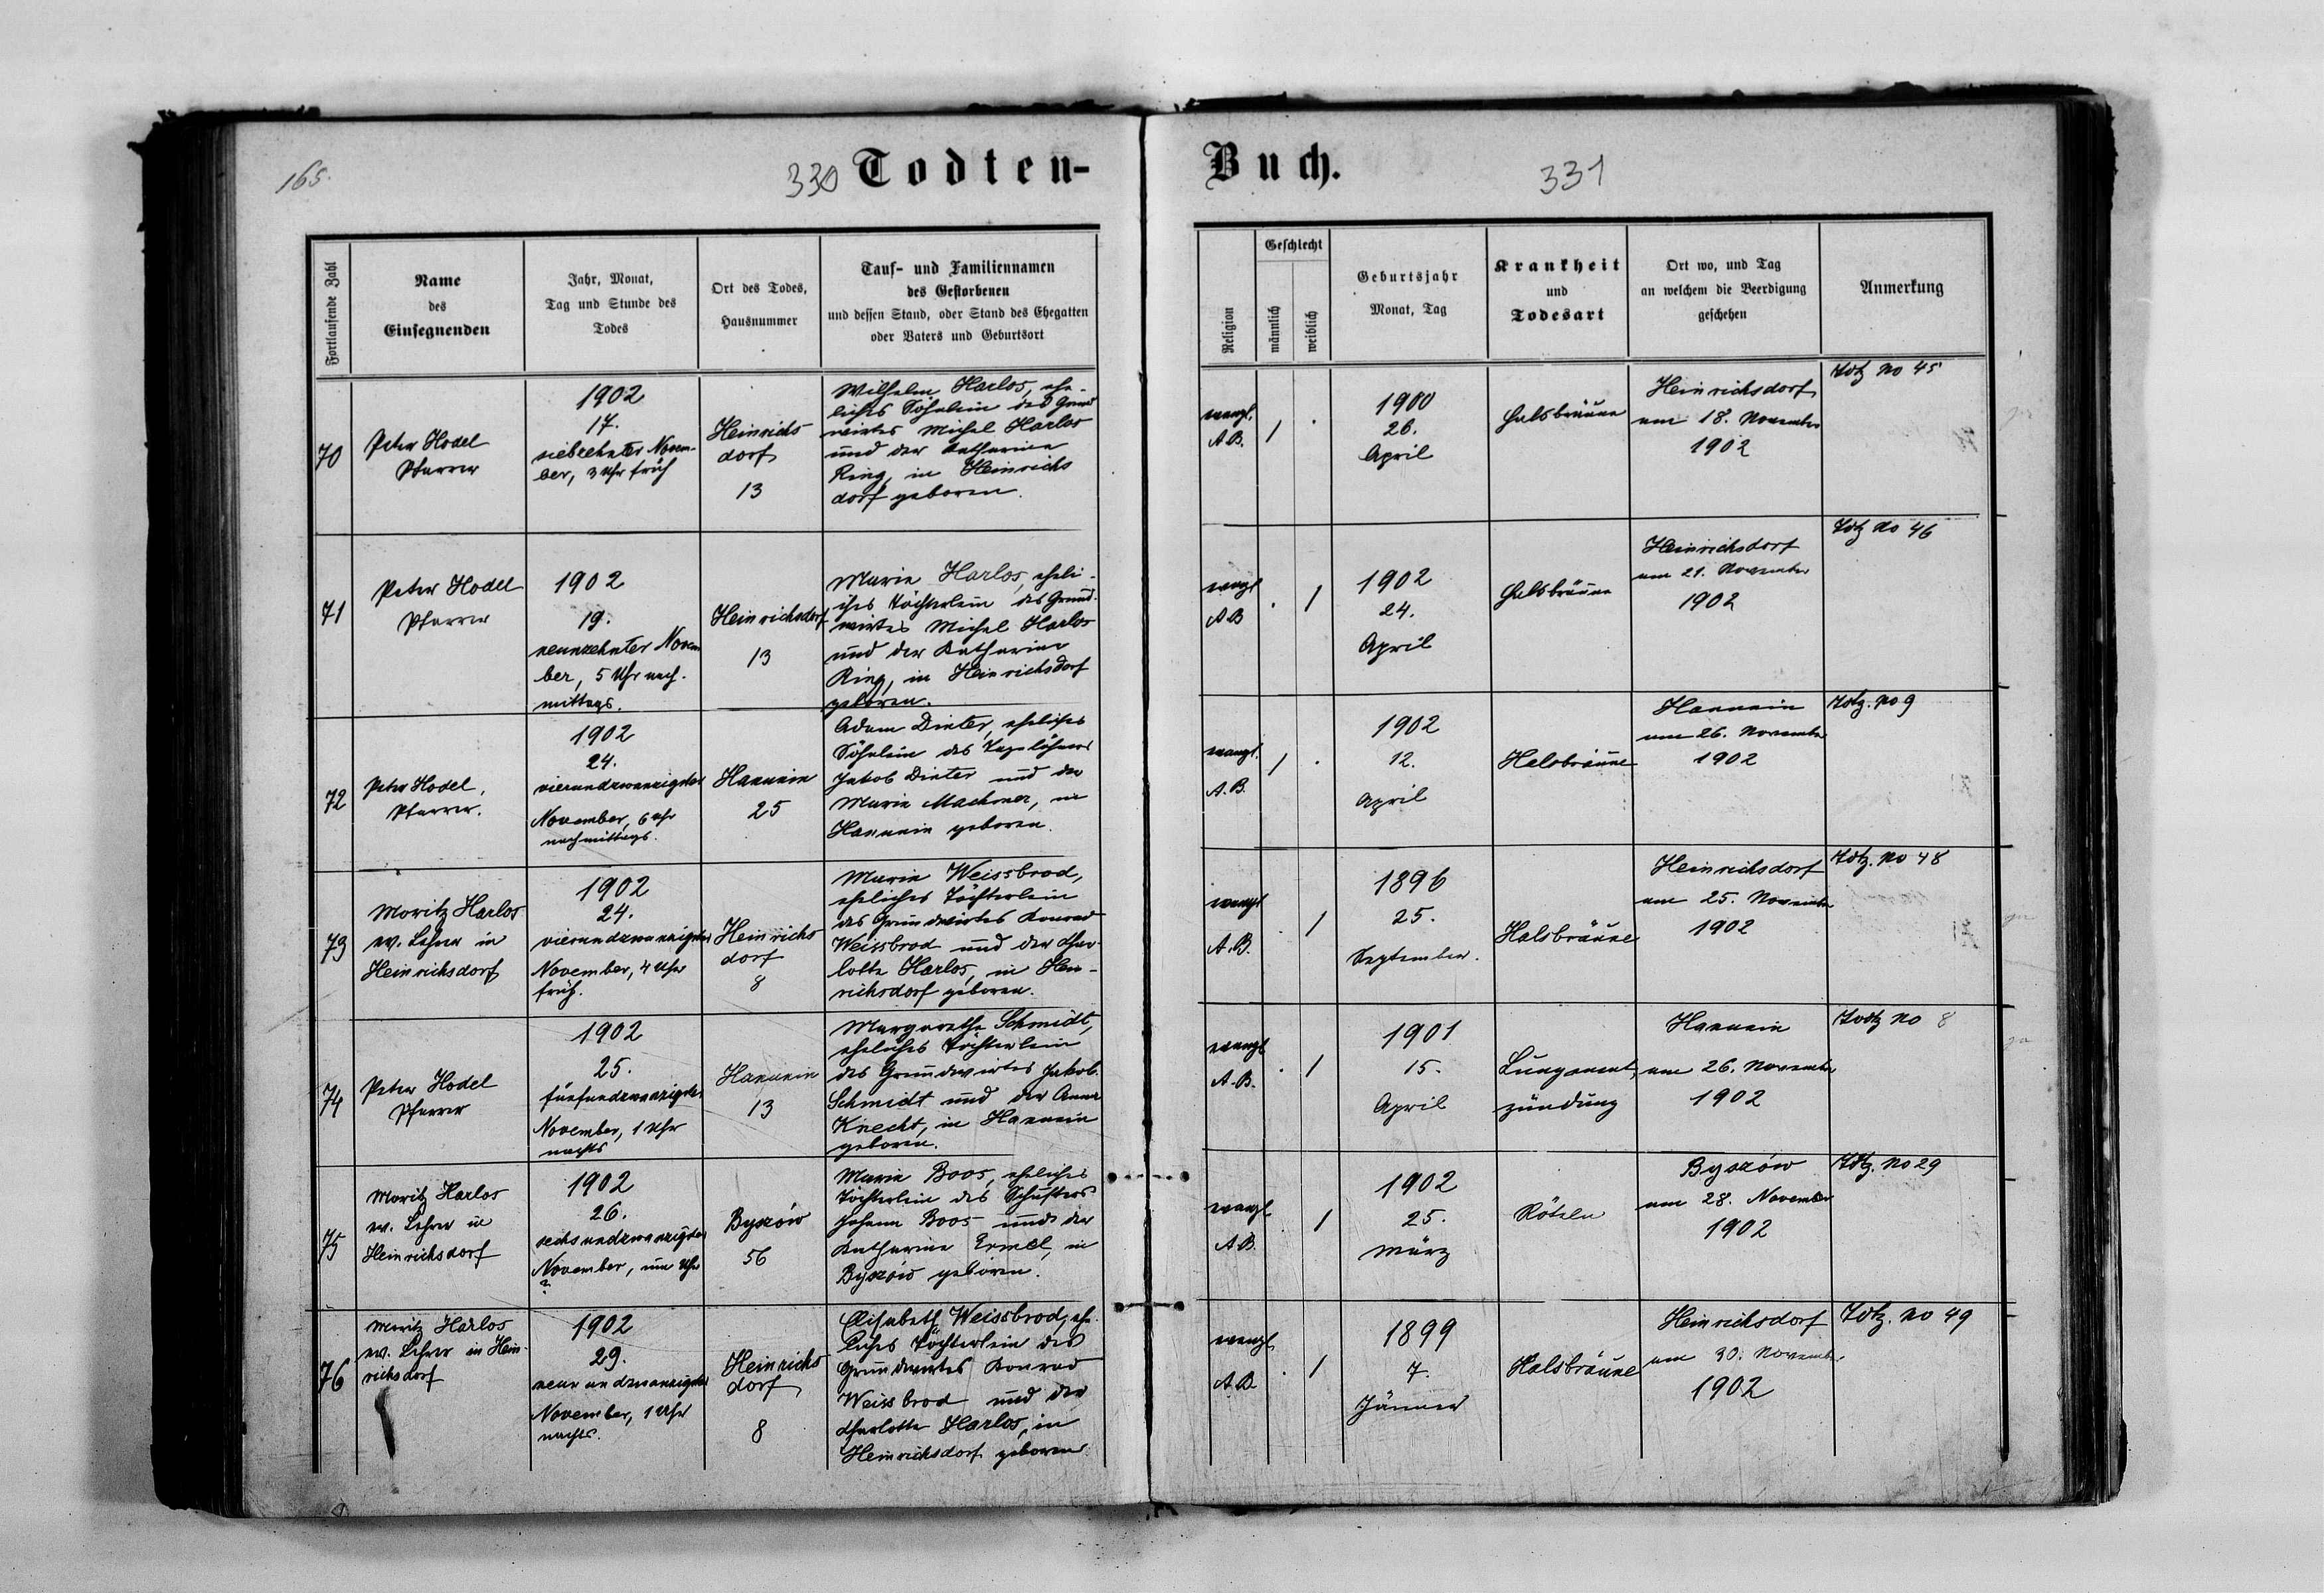 165.
330 Todten-
Buch. 331
Fortlaufende Zahl
Name
des
Einsegnenden
Jahr, Monat,
Tag und Stunde des
Todes
Ort des Todes,
Hausnummer
Tauf- und Familiennamen
des Gestorbenen
und dessen Stand, oder Stand des Ehegatten
oder Vaters und Geburtsort
Religion
Geschlecht
männlich
weiblich
Geburtsjahr
Monat, Tag
Krankheit
und
Todesart
Ort wo, und Tag
an welchem die Beerdigung
geschehen
Anmerkung
70
Peter Hodel
Pfarrer
1902
17.
siebzehnter Novem-
ber, 3 Uhr früh
Heinrichs
dorf
13
Wilhelm Harlos, ehe-
liches Söhnlein des Grund
wirtes Michel Harlos
und der Katharina
Ring, in Heinrichs
dorf geboren.
evangl.
A.B.
1
.
1900
26.
April
Halsbräune
Heinrichsdorf
am 18. November
1902
Totz No 45
71
Peter Hodel
Pfarrer
1902
19.
neunzehnter Novem
ber, 5 Uhr nach-
mittags.
Heinrichsdorf
13
Marie Harlos, eheli-
ches Töchterlein des Grund-
wirtes Michel Harlos
und der Katharina
Ring, in Heinrichsdorf
geboren.
evangl
A.B
.
1
1902
24.
April
Halsbräune
Heinrichsdorf
am 21. November
1902
Totz No 46
72
Peter Hodel,
Pfarrer.
1902
24.
vierundzwanzigster
November, 6 Uhr
nachmittags.
Hanunin
25
Adam Dinter, eheliches
Söhnlein des Tagelöhners
Jakob Dinter und der
Marie Machmer, in
Hanunin geboren.
evangl.
A.B.
1
.
1902
12.
April
Halsbräune
Hanunin
am 26. November
1902
Totz. No 9
73
Moritz Harlos
ev. Lehrer in
Heinrichsdorf
1902
24.
vierundzwanzigster
November, 4 Uhr
früh.
Heinrichs
dorf
8
Marie Weissbrod,
eheliches Töchterlein
des Grundwirtes Konrad
Weissbrod und der Char-
lotte Harlos, in Hein-
richsdorf geboren.
evangl
A.B.
.
1
1896
25.
September.
Halsbräune
Heinrichsdorf
am 25. November
1902
Totz. No 48
74
Peter Hodel
Pfarrer
1902
25.
fünfundzwanzigster
November, 1 Uhr
nachts
Hanunin
13
Margarethe Schmidt,
eheliches Töchterlein
des Grundwirtes Jakob
Schmidt und der Anna
Knecht, in Hanunin
geboren.
evangl
A.B.
.
1
1901
15.
April
Lungenent-
zündung
Hanunin
am 26. November
1902
Totz No 8
75
Moritz Harlos
ev. Lehrer in
Heinrichsdorf
1902
26.
sechsundzwanzigster
November, um Uhr
?
Byszów
56
Marie Boos, eheliches
Töchterlein des Schusters
Johann Boos und der
Katharina Ermel, in
Byszów geboren.
evangl.
A.B.
1
1902
25.
März
Röteln
Byszów
am 28. November
1902
Totz. No 29
76
Moritz Harlos
ev. Lehrer in Hein-
richsdorf
1902
29.
neunundzwanzigster
November, 1 Uhr
nachts.
Heinrichs
dorf
8
Elisabeth Weissbrod, ehe-
liches Töchterlein des
Grundwirtes Konrad
Weissbrod und der
Charlotte Harlos, in
Heinrichsdorf geboren.
evangl.
A.B.
.
1
1899
7.
Jänner
Halsbräune
Heinrichsdorf
am 30. November
1902
Totz. No 49